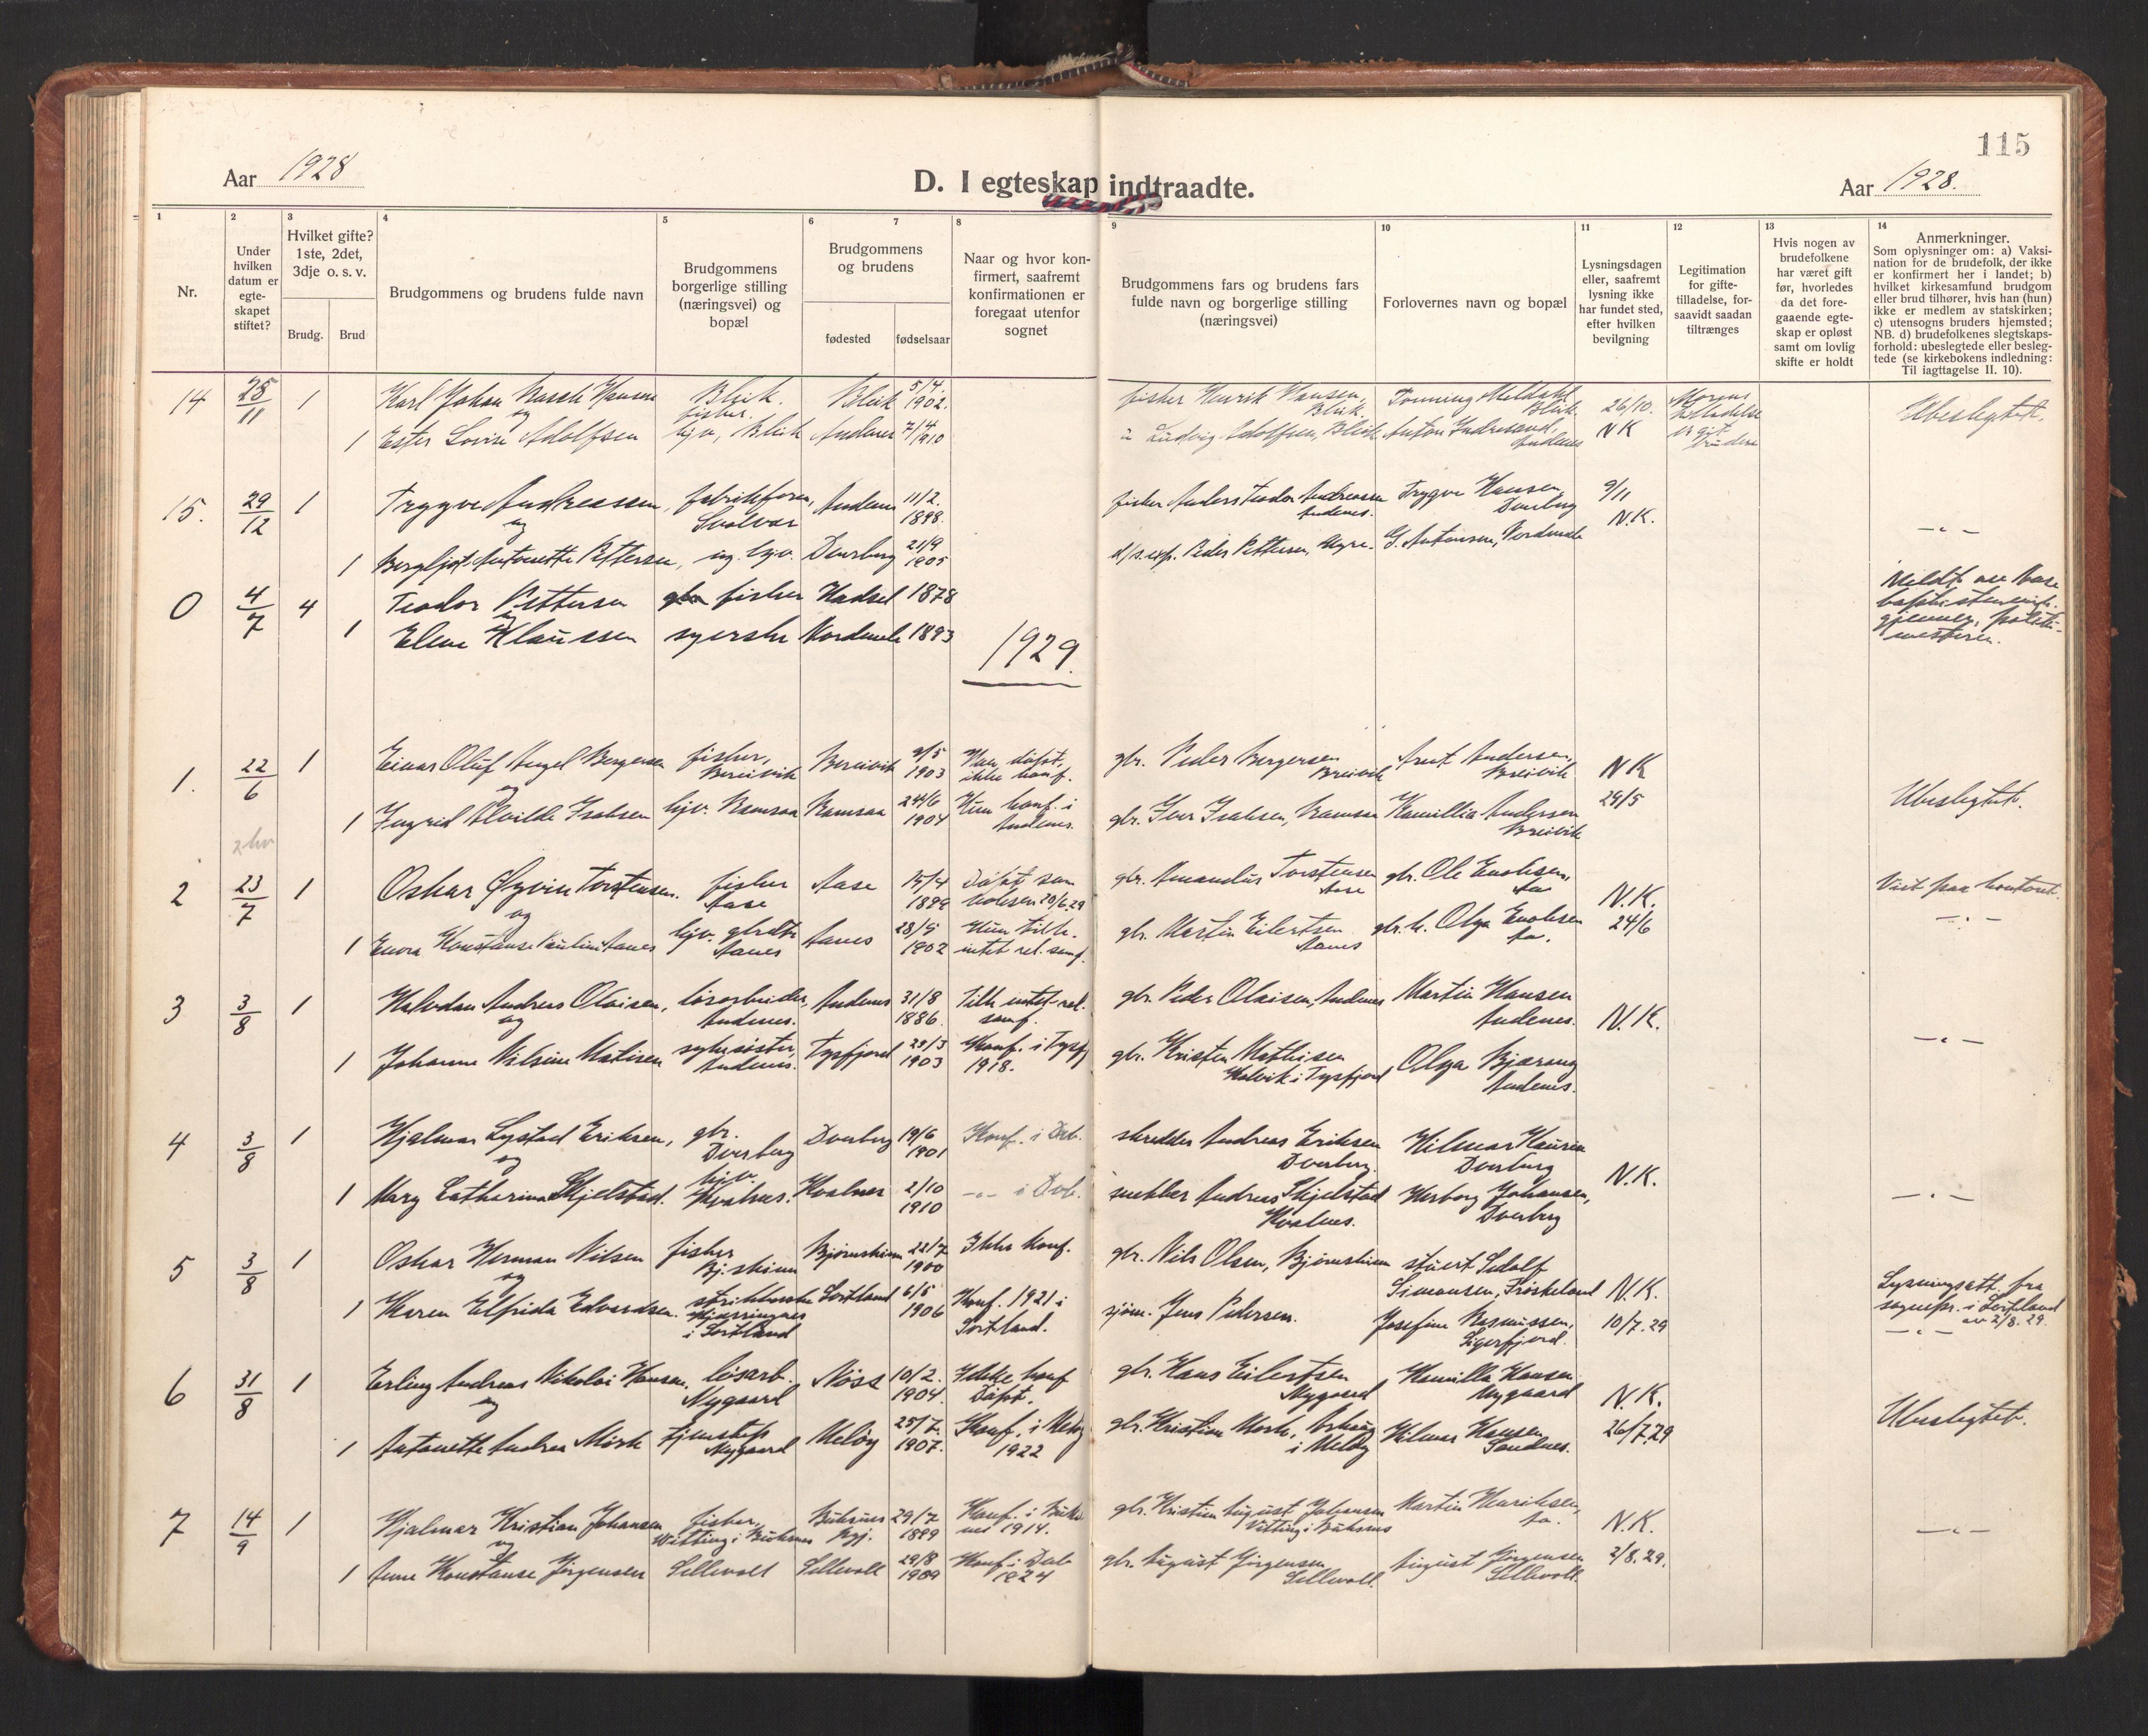 115
Aar 1928
D. I egteskap indtraadte.
Aar 1928.
1 2 3 4 5 6 7 8 9 10 11 12 13 14
Nr.
Under hvilken datum er egte-skapet stiftet?
Hvilket gifte? 1ste, 2det, 3dje o. s. v.
Brudg. Brud
Brudgommens og brudens fulde navn
Brudgommens borgerlige stilling (næringsvei) og bopæl
Brudgommens og brudens
fødested fødselsaar
Naar og hvor kon-firmert, saafremt konfirmationen er foregaat utenfor sognet
Brudgommens fars og brudens fars fulde navn og borgerlige stilling (næringsvei)
Forlovernes navn og bopæl
Lysningsdagen eller, saafremt lysning ikke har fundet sted, efter hvilken bevilgning
Legitimation for gifte-tilladelse, for-saavidt saadan tiltrænges
Hvis nogen av brudefolkene har været gift før, hvorledes da det fore-gaaende egte-skap er opløst samt om lovlig skifte er holdt
Anmerkninger.
Som oplysninger om: a) Vaksi-nation for de brudefolk, der ikke er konfirmert her i landet; b) hvilket kirkesamfund brudgom eller brud tilhører, hvis han (hun) ikke er medlem av statskirken; c) utensogns bruders hjemsted; NB. d) brudefolkenes slegtskaps-forhold: ubeslegtede eller beslegtede (se kirkebokens indledning: Til iagttagelse II. 10).
14 28/11 1 Karl Johan Hansen Bleik. fisher. Bleik 5/4. 1902. fisher Henrik Hansen, Bleik. Meldahl Bleik. 26/10. Morens tilladelse er git Ubeslegtet.
og
1 Ester Lovise Adolfsen hjv, Bleik Andenes 7/4 1910 Ludvig Adolfsen, Bleik Anton Andenes NK
15. 29/12 1 Trygve Andreassen, Svolvær Andenes 11/2 1898. fisher Anders Teodor Andreassen Andenes. Trygve Hansen Dverberg 9/11 N.K. -"-
og
1 Bergljot Antonette Pettersen, hjv. Dverberg 21/9 1905 Peder Pettersen, G. Antonsen, Nordmela
0 4/7 4 Teodor Pettersen fisher Hadsel 1878
og
1 Elene Klaussen syerske Nordmela 1893
1929.
1. 22/6 1 Einar Oluf Bergersen fisher, Breivik Breivik 9/5 1903 Han døpt, ikke konf. gbr. Peder Bergersen Breivik Arnt Andersen, Breivik NK Ubeslegtet.
og
1 Ingrid Alvilde Isaksen hjv. Ramsaa Ramsaa 24/6 1904 Hun konf. i Andenes. gbr. Iver Isaksen, Ramsaa Kamillia Andersen Breivik 29/5
2 23/7 1 Oskar Øyvin Torstensen. fisher Aase Aase 15/4 1899 Døpt som voksen 20/6.29 gbr. Amandus Torstensen Aase gbr. Ole Enoksen, N.K. Viet paa kontoret.
og
1 Enora Konstanse Pauline Aanes hjv. Aanes Aanes 28/9 1902 Hun tilh. intet rel. samf. gbr. Martin Eilertsen Aanes Olga Enoksen 24/6 -"-
3 3/8 1 Halvdan Andreas Olaisen, løsarbeider, Andenes. Andenes 31/8 1886. Tilh intet rel. samf. gbr. Peder Olaisen, Andenes Martin Hansen Andenes. N.K. -"-
og
1 Johanne Nilsine Matisen sykesøster, Andenes. Tysfjord 29/3 1903 Konf. i Tysfj 1918. gbr. Kristen Mathisen i Tysfjord Olga Bjørang Andenes.
4 3/8 1 Hjalmar Lystad Eriksen, gbr. Dverberg Dverberg 19/6 1901 Konf. i Dvb. skredder Andreas Eriksen Dverberg. Hilmar Hansen Dverberg N.K. -"-
og
1 Mary Catharina Skjelstad. hjv. Kvalnes. Kvalnes 2/10 1910 -"- i Dvb. snekker Andreas Skjelstad Kvalnes. Herborg Johansen, Dverberg
5 3/8 1 Oskar Herman Nilsen fisher Bj.skinn Bjørnskinn 22/7 1900 Ikke konf. gbr. Nils Olsen, Bjørnskinn stuert Edolf Simonsen, Frøskeland N.K. Lysningsatt. fra sognepr. i Sortland av 2/8. 29.
og
1 Karen Elfrida Edvardsen. i Sortland Sortland 6/5 1906 Konf. 1921 i Sortland. sjøm. Jens Pedersen. Josefine Rasmussen, Sigerfjord. 10/7.29 -"-
6 31/8 1 Erling Andreas Nikolai Hansen, løsarb. Nygaard Nøss 10/2. 1904. Ikke konf Døpt. gbr. Hans Eilertsen Nygaard Kamilla Hansen Nygaard N.K. Ubeslegtet.
og
1 Antonette Andrea Mørk Nygaard Meløy 25/7. 1907. Konf. i Meløy 1922 gbr. Kristian Mørk, i Meløy Hilmar Hansen Sandnes. 26/7.29
7 14/9 1 Hjalmar Kristian Johansen fisher, Vitting i Buksnes Buksnes 29/7 1899 Konf. i Buksnes 1914. gbr. Kristian August Johansen Vitting i Buksnes Martin Henriksen, N.K. -"-
og
1 Anne Konstanse Jørgensen Sellevoll Sellevoll 29/8 1909 Konf. i Dvb 1924 gbr. August Jørgensen Sellevoll. August Jørgensen Sellevoll. 2/8.29.